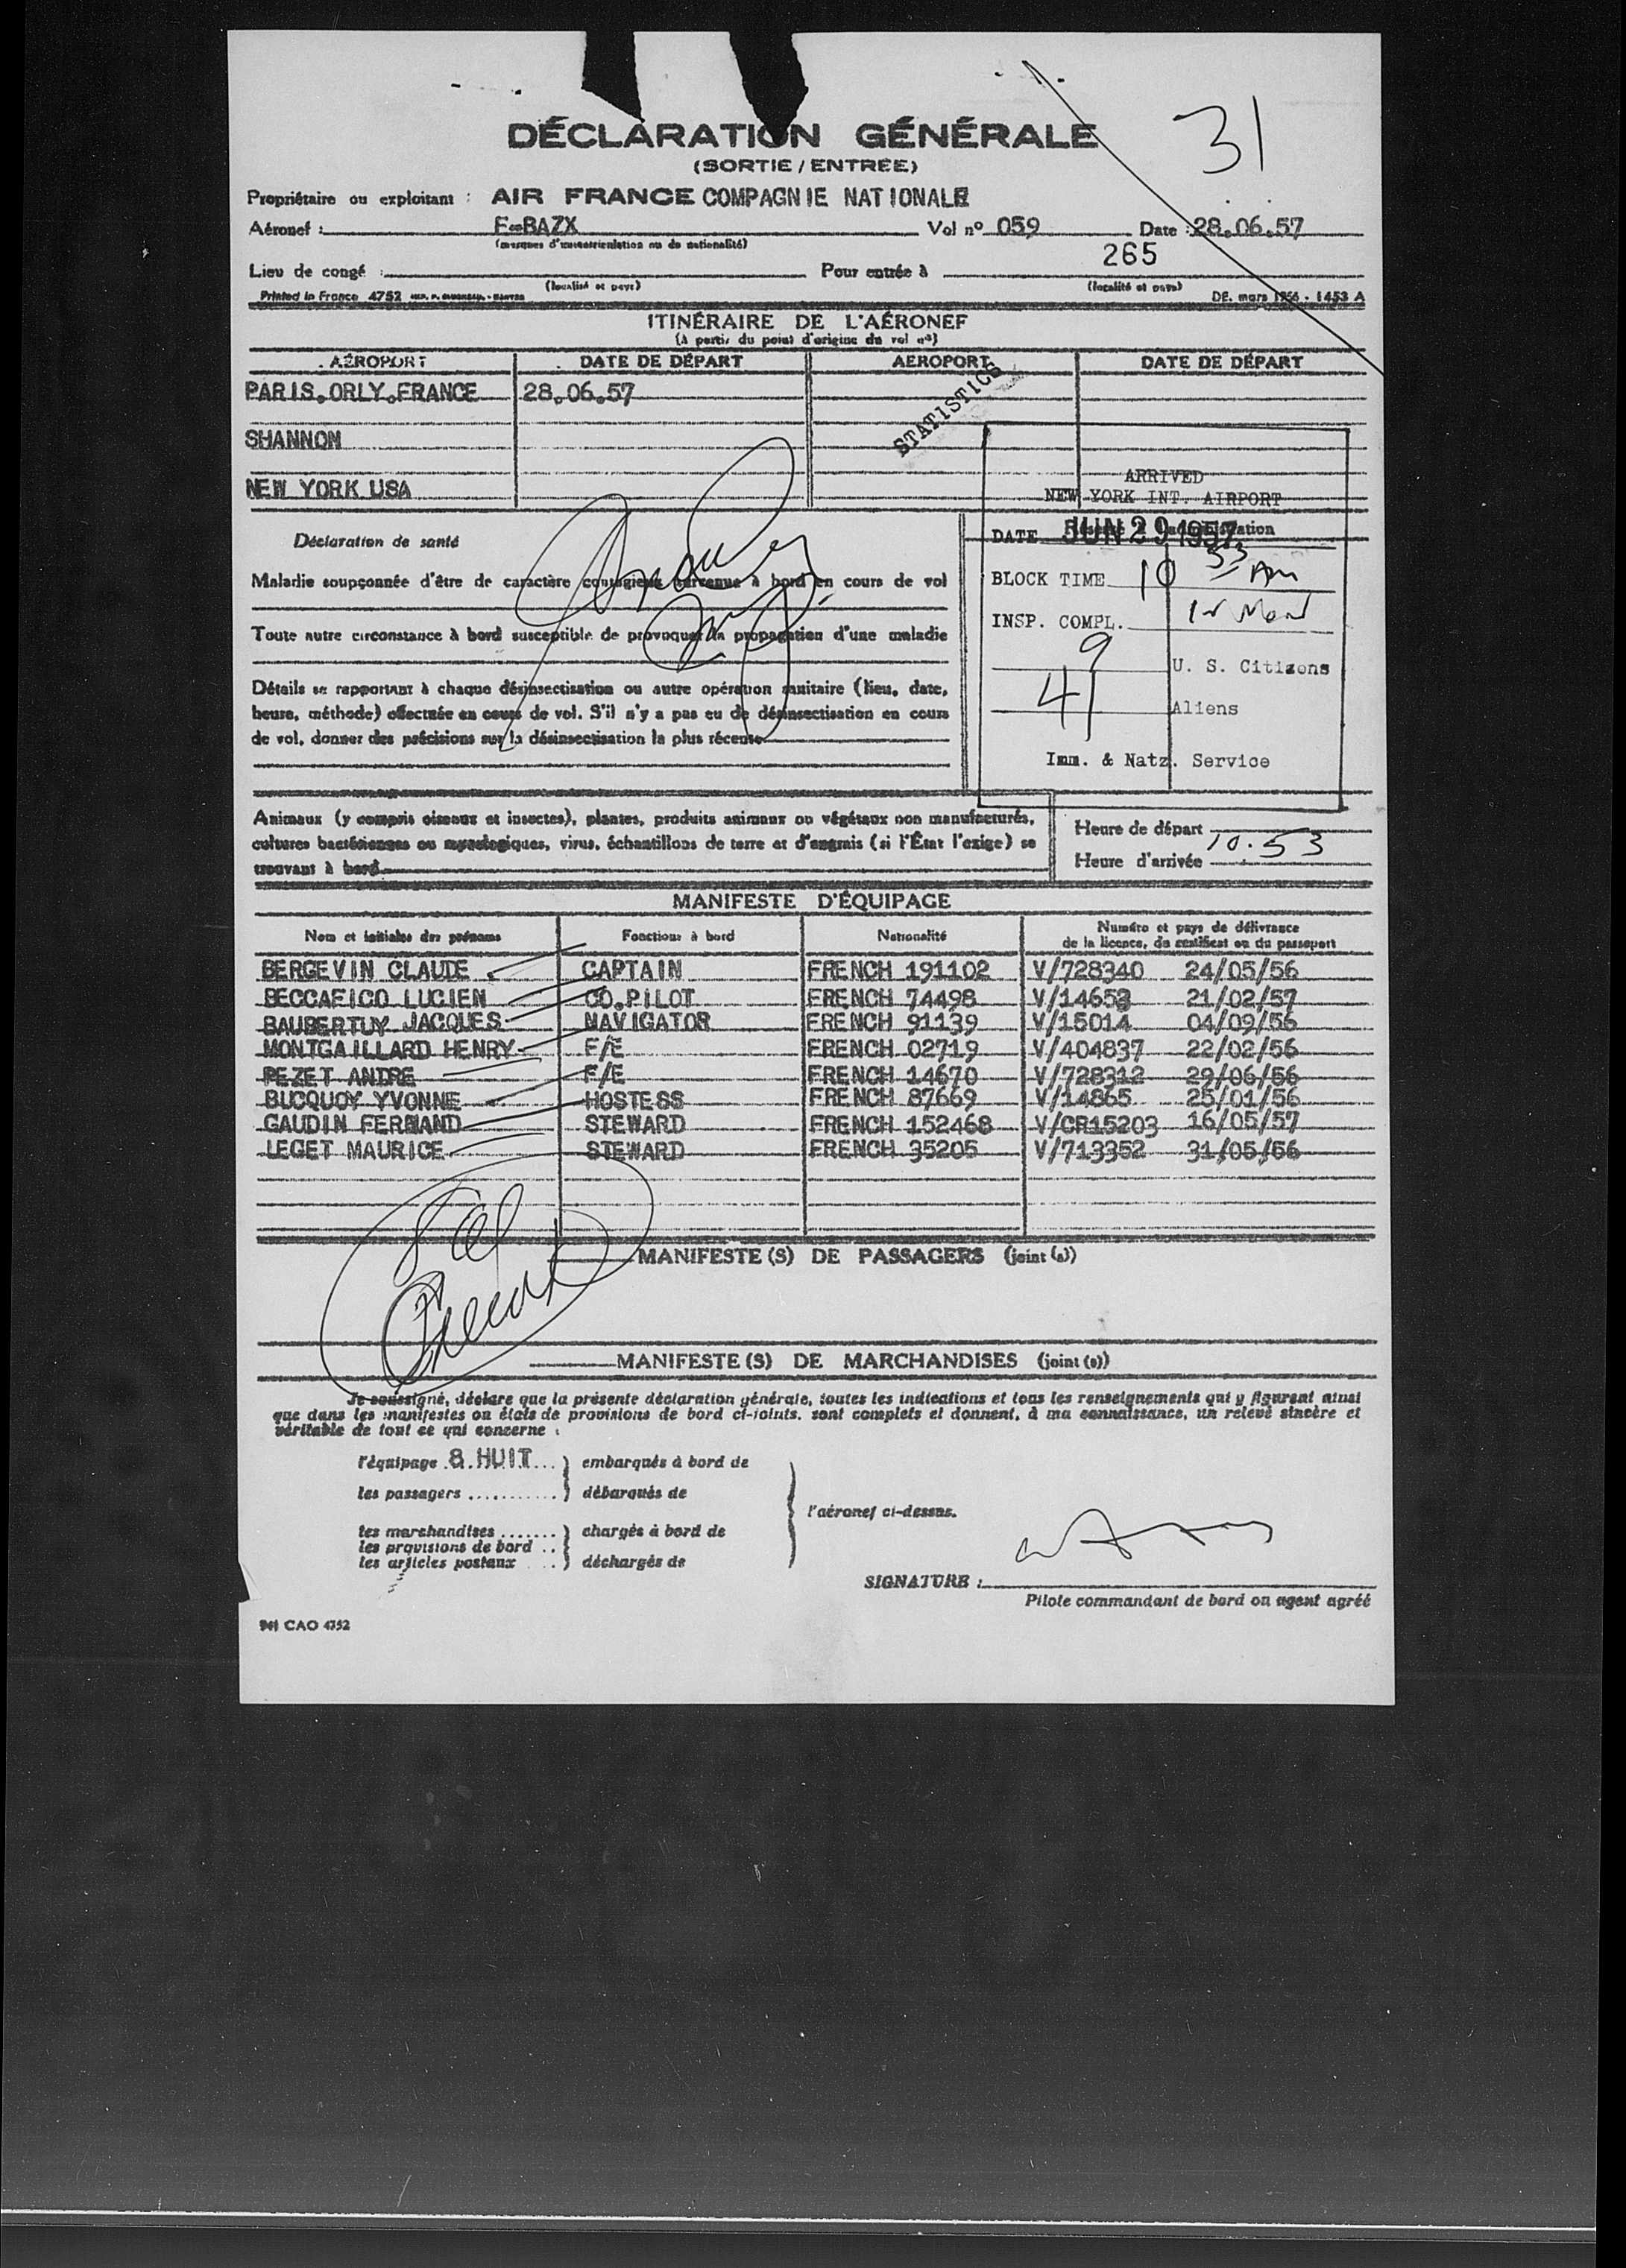 31
DÉCLARATION GÉNÉRALE
(SORTIE / ENTRÉE)
Propriétaire ou exploitant : AIR FRANCE COMPAGNIE NATIONALE
Aéronef : F-BAZX Vol nº 059 Date : 28.06.57
(marques d'immatriculation ou de nationalité)
265
Lieu de congé : Pour entrée à
(localité et pays) (localité et pays)
Printed in France 4752 DE. mars 1956 - 1453 A
ITINÉRAIRE DE L'AÉRONEF
(à partir du point d'origine du vol nº)
AÉROPORT DATE DE DÉPART AEROPORT DATE DE DÉPART
PARIS.ORLY.FRANCE 28.06.57
STATISTICS
SHANNON
NEW YORK USA
ARRIVED
NEW YORK INT. AIRPORT
DATE JUN 29 1957
BLOCK TIME 10 53 AM
INSP. COMPL.
9 U. S. Citizens
41 Aliens
Imm. & Natz. Service
Déclaration de santé
Maladie soupçonnée d'être de caractère contagieux survenue à bord en cours de vol
Toute autre circonstance à bord susceptible de provoquer la propagation d'une maladie
Détails se rapportant à chaque désinsectisation ou autre opération sanitaire (lieu, date,
heure, méthode) effectuée en cours de vol. S'il n'y a pas eu de désinsectisation en cours
de vol, donner des précisions sur la désinsectisation la plus récente
Animaux (y compris oiseaux et insectes), plantes, produits animaux ou végétaux non manufacturés,
cultures bactériennes ou mycologiques, virus, échantillons de terre et d'engrais (si l'État l'exige) se
trouvant à bord
Heure de départ
Heure d'arrivée 10.53
MANIFESTE D'ÉQUIPAGE
Nom et initiales des prénoms Fonctions à bord Nationalité Numéro et pays de délivrance
de la licence, du certificat ou du passeport
BERGEVIN CLAUDE CAPTAIN FRENCH 191102 V/728340 24/05/56
BECCAFICO LUCIEN CO.PILOT FRENCH 74498 V/14653 21/02/57
BAUBERTUY JACQUES NAVIGATOR FRENCH 91139 V/15014 04/09/56
MONTGAILLARD HENRY F/E FRENCH 02719 V/404837 22/02/56
PEZET ANDRE F/E FRENCH 14670 V/728312 29/06/56
BUCQUOY YVONNE HOSTESS FRENCH 87669 V/14865 25/01/56
GAUDIN FERNAND STEWARD FRENCH 152468 V/CR15203 16/05/57
LEGET MAURICE STEWARD FRENCH 35205 V/713352 31/05/56
MANIFESTE (S) DE PASSAGERS (joint (s))
MANIFESTE (S) DE MARCHANDISES (joint (s))
Je soussigné, déclare que la présente déclaration générale, toutes les indications et tous les renseignements qui y figurent ainsi
que dans les manifestes ou états de provisions de bord ci-joints, sont complets et donnent, à ma connaissance, un relevé sincère et
véritable de tout ce qui concerne :
l'équipage 8 HUIT ... ) embarqués à bord de
les passagers ........... ) débarqués de
l'aéronef ci-dessus.
les marchandises ....... ) chargés à bord de
les provisions de bord ..
les articles postaux ... ) déchargés de
SIGNATURE :
Pilote commandant de bord ou agent agréé
941 CAO 4752